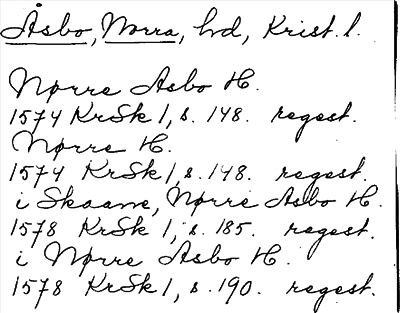 Åsbo, Norra, hd, Krist. l.
Nørre Asbo H.
1574 KrSk 1, s. 148. regest.
Nørre H.
1574 KrSk 1, s. 148. regest.
i Skaane, Nørre Asbo H.
1578 KrSk 1, s. 185. regest.
i Nørre Asbo H.
1578 KrSk 1, s. 190. regest.